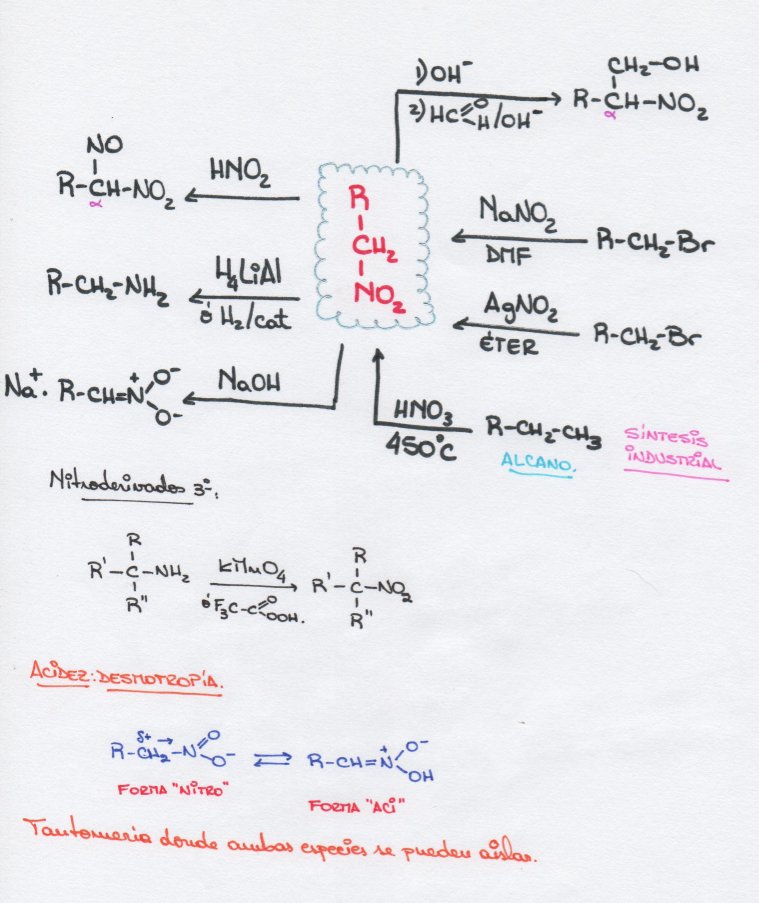 1) OH⁻
2) HC=O H/OH⁻
CH₂-OH
R-CH-NO₂
α
NO
R-CH-NO₂
α
HNO₂
R
CH₂
NO₂
NaNO₂
DMF
R-CH₂-Br
R-CH₂-NH₂
H₄LiAl
ó H₂/cat
AgNO₂
ÉTER
R-CH₂-Br
Na⁺. R-CH=N⁺ O⁻ O⁻
NaOH
HNO₃
450°C
R-CH₂-CH₃
ALCANO.
SÍNTESIS
INDUSTRIAL
Nitroderivados 3º:
R
R'-C-NH₂
R"
KMnO₄
ó F₃C-C=O OOH.
R
R'-C-NO₂
R"
ACIDEZ: DESMOTROPÍA.
δ+ →
R-CH₂-N=O O⁻
⇌
R-CH=N⁺ O⁻ OH
FORMA "NITRO"
FORMA "ACI"
Tautomeria donde ambas especies se pueden aislar.